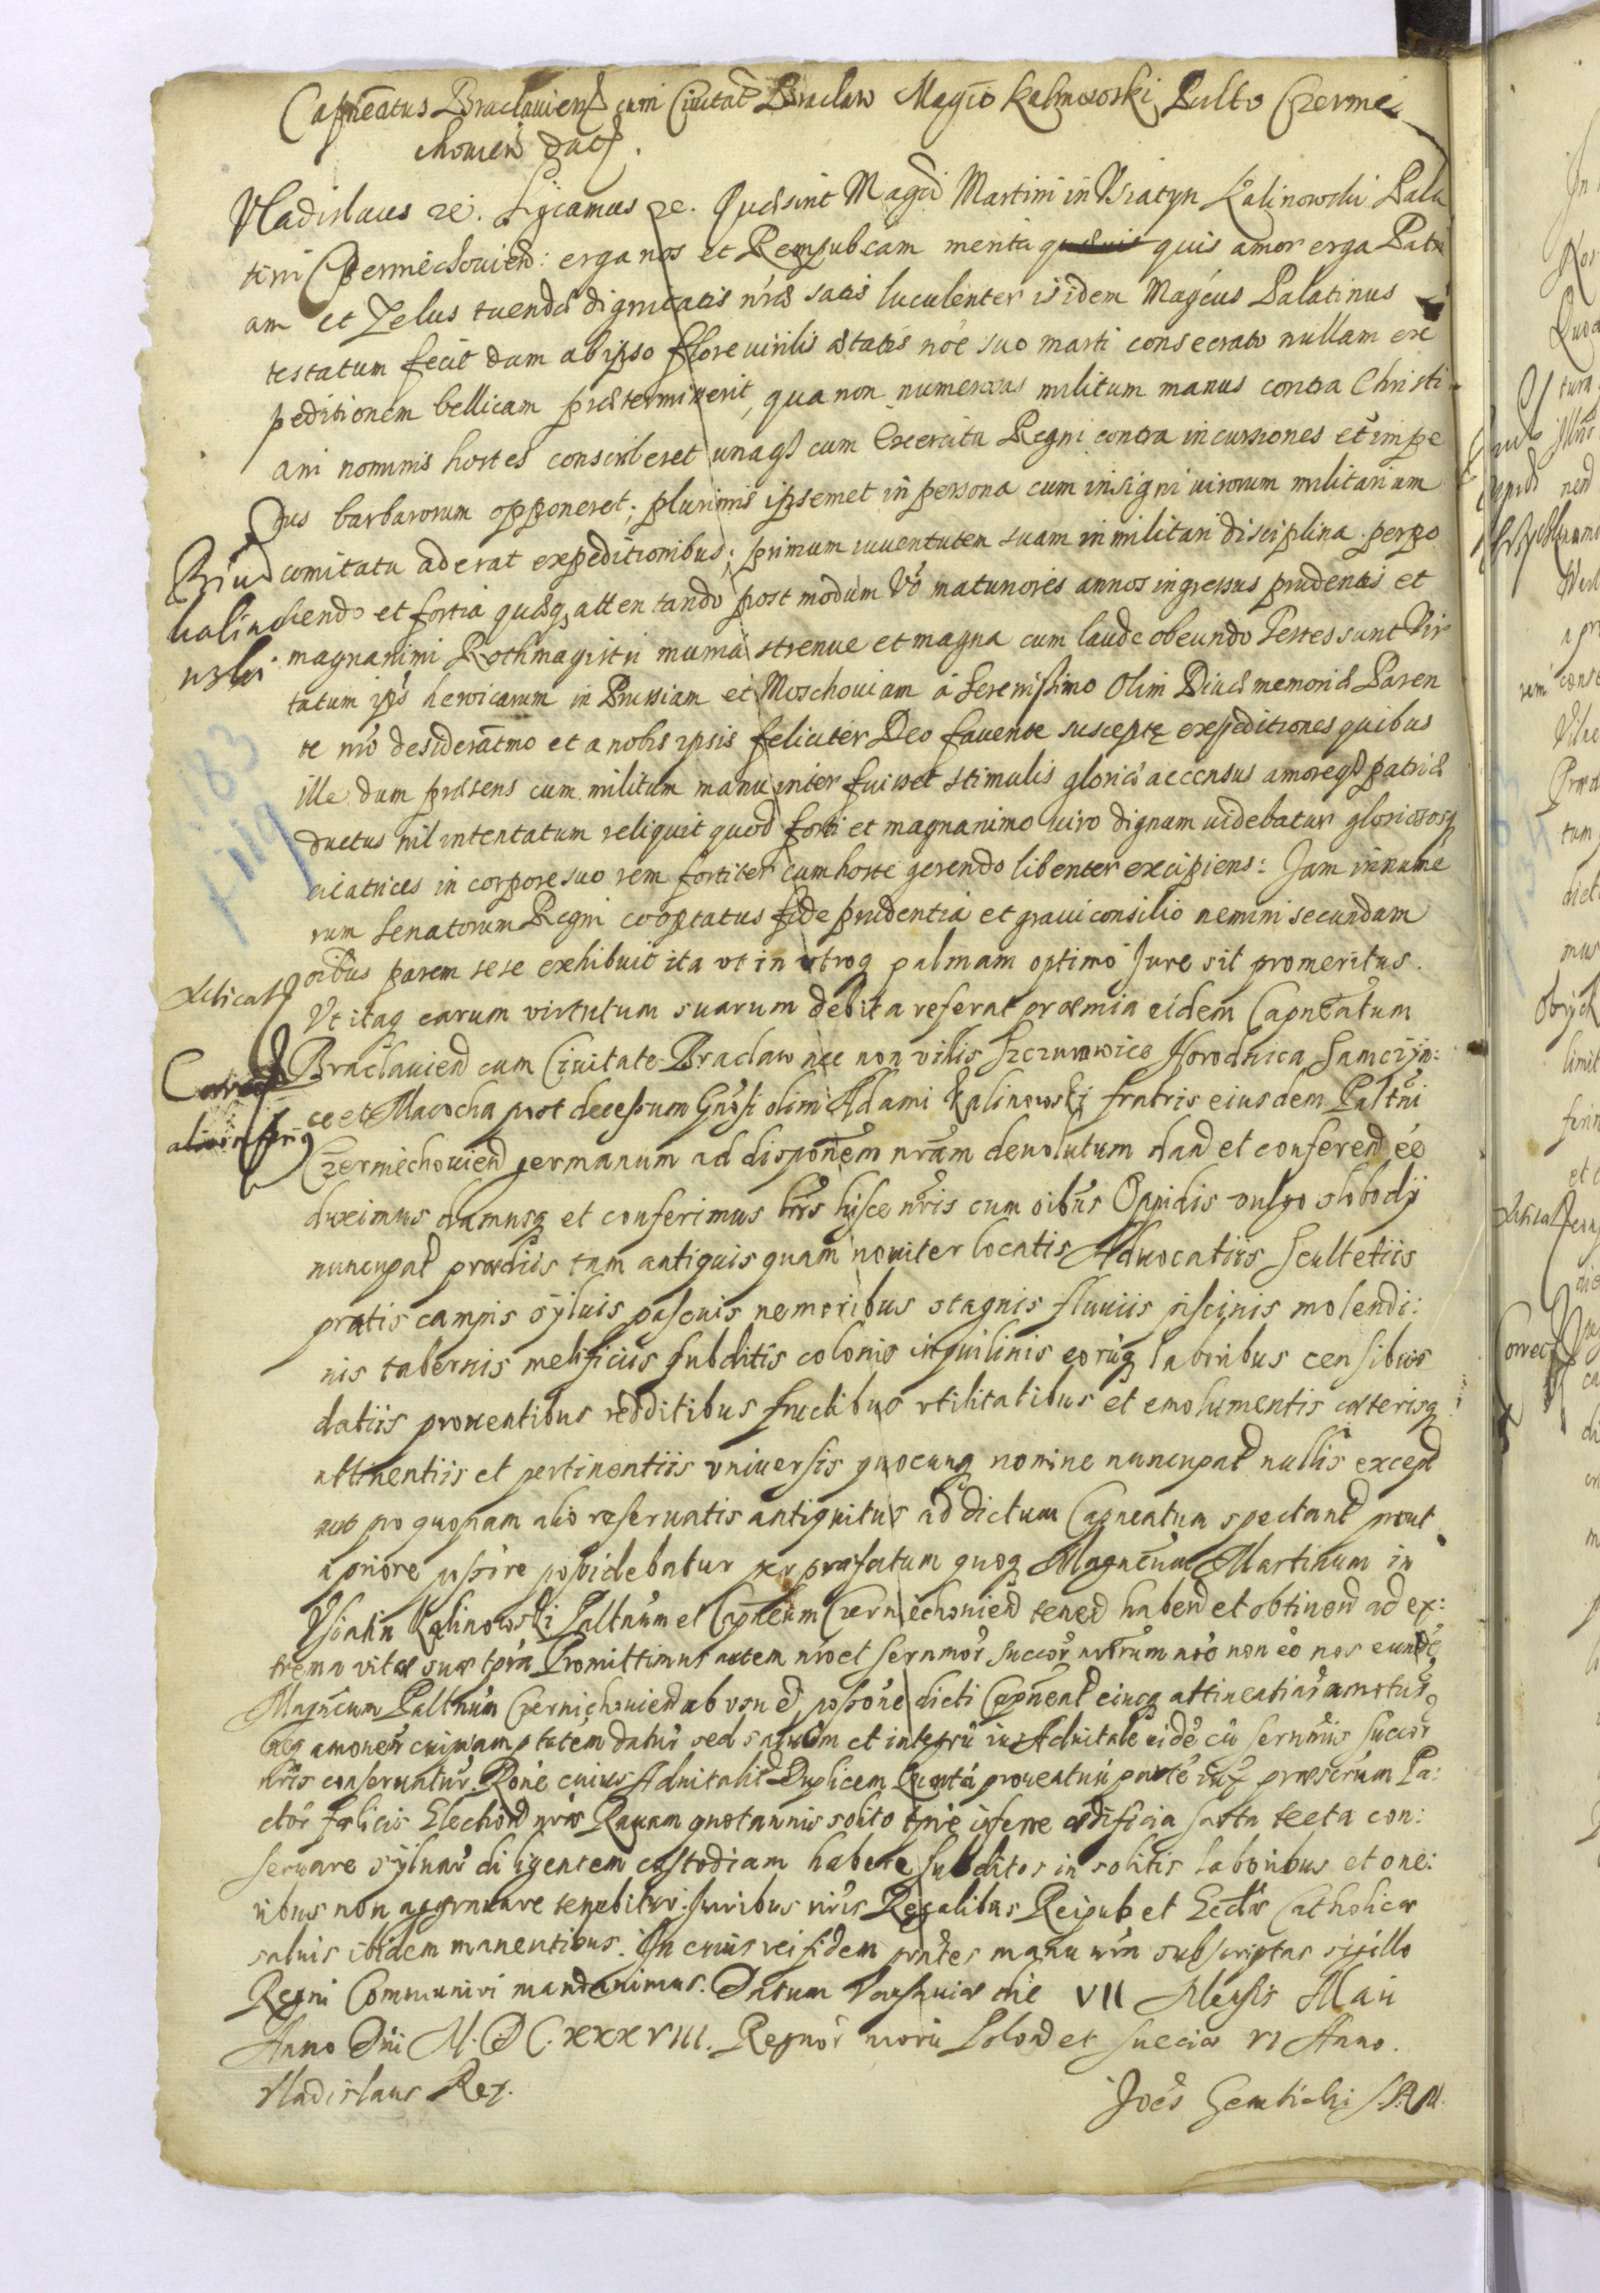 Capneatus Braclaviens cum Civitate Braclaw Magco Kalinowski Pallto Czernie
choviens datus.
Vladislaus etc. Significamus etc. Quae sint Magci Martini in Vsiatyn Kalinowski Pala
tini Czerniechoviens: erga nos et Rempubcam merita quis amor erga Patri
am et Zelus tuendae dignitatis nrae satis luculenter is idem Magcus Palatinus
testatum fecit dum ab ipso flore virilis aetatis noe suo marti consecrato nullam ex
peditionem bellicam praetermiserit, qua non numerosas militum manus contra Christi
ani nominis hostes conscriberet unaqz cum Exercitu Regni contra incursiones et impe
tus barbarorum opponeret; plurimis ipsemet in persona cum insigni virorum militarium
comitatu aderat expeditionibus; primum iuventutem suam in militari disciplina perpo
liendo et fortia quaeqz attentando post modum Vo maturiores annos ingressus prudentis et
magnanimi Rothmagistri munia strenue et magna cum laude obeundo Testes sunt Vir
tutum ips heroicarum in Prussiam et Moschoviam a Serenissimo Olim Divae memoriae Paren
te nro desideratmo et a nobis ipsis feliciter Deo favente susceptę expeditiones quibus
ille dum praesens cum militum manu interfuisset stimulis gloriae accensus amoreqz patriae
ductus nil intentatum reliquit quod forti et magnanimo viro dignum videbatur gloriosasqz
cicatrices in corpore suo rem fortiter cum hoste gerendo libenter excipiens: Jam in nume
rum Senatorum Regni cooptatus fide prudentia et gravi consilio nemini secundum
oibus parem sese exhibuit ita vt in vtroq palmam optimo Jure sit promeritus.
Vt itaq earum virtutum suarum debita referat praemia eidem Capneatum
Braclaviens cum Civitate Braclaw nec non villis Szczurowice Horodnica Samczyn:
ce et Macocha post decessum Gnosi olim Adami Kalinowski fratris eiusdem Paltni
Czerniechoviens germanum ad disponem nram devolutum dand et conferend ee
duximus damusq et conferimus lris hisce nris cum oibus Oppidis vulgo slobody
nuncupat praediis tam antiquis quam noviter locatis Advocatiis Scultetiis
pratis campis sylvis pascuis nemoribus stagnis fluviis piscinis molendi:
nis tabernis melificiis subditis colonis inquilinis eorumq laboribus censibus
datiis proventibus redditibus fructibus vtilitatibus et emolumentis caeterisq
attinentiis et pertinentiis vniversis quocunq nomine nuncupat nullis except
aut pro quopiam alio reservatis antiquitus ad dictum Capneatum spectant prout
a priore possore possidebatur per praefatum quoq Magncum Martinum in
Vsiatin Kalinowski Paltnum et Capneum Czerniechoviens tenend habend et obtinend ad ex:
trema vitae suae tpra Promittimus autem nroet Sernmor Succor nrorum noe non eo nos eunde
Magncum Paltnum Czernichoviens ab vsu et possone dicti Capneat eiusq attinentiar amoturos
neq amovendi cuipiam ptatem daturos sed salvum et integru ius Advitale eide cu Sernmis Succor
nris conservaturos. Rone cuius Advitalit Duplicem Quarta proventuu parte iux praescrum Pa:
ctor felicis Electionis nrae Ravam quotannis solito tpre inferre aedificia sarta tecta con:
servare sylvar diligentem custodiam habere subditos insolitis laboribus et one:
ribus non aggravare tenebitur. Juribus nris Regalibus Reipub et Eccliae Catholicae
salvis ibidem manentibus. In cuius rei fidem prntes manu nra subscriptas sigillo
Regni Communiri mandavimus. Datum Varsaviae die VII Mensis Maii
Anno Dni M. DC. XXXVIII. Regnor nrorum Polon et Sueciae VI Anno.
Vladislaus Rex.
Joes Gembicki S.R.M.